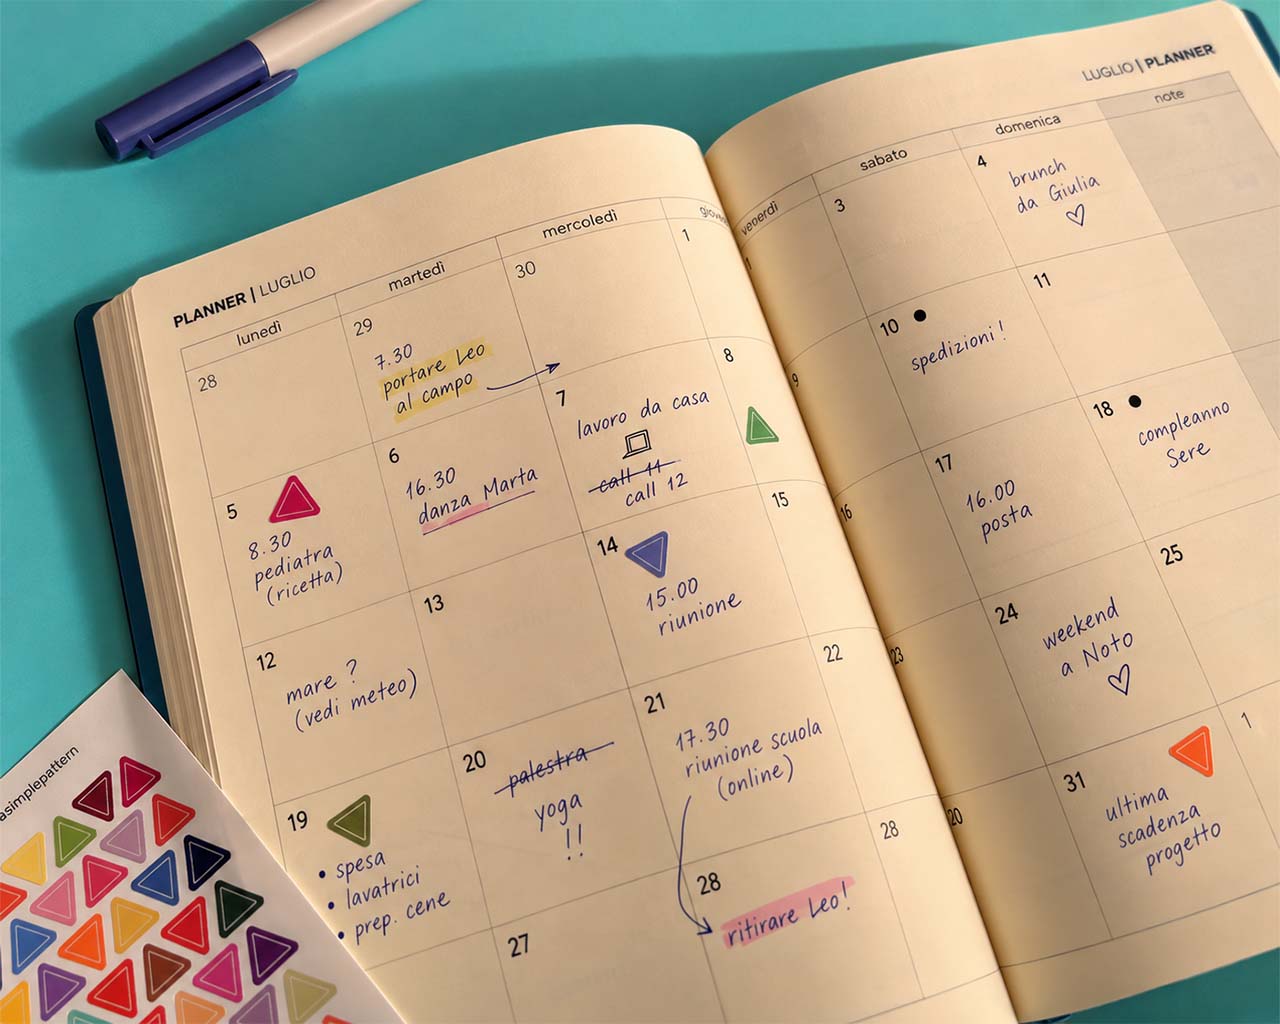 LUGLIO | PLANNER
PLANNER | LUGLIO
lunedì
martedì
mercoledì
sabato
domenica
note
28
29
7.30
portare Leo
al campo
30
1
3
4
brunch
da Giulia
5
8.30
pediatra
(ricetta)
6
16.30
danza Marta
7
lavoro da casa
call 11
call 12
8
9
10
spedizioni!
11
12
mare ?
(vedi meteo)
13
14
15.00
riunione
15
16
17
16.00
posta
18
compleanno
Sere
19
• spesa
• lavatrici
• prep. cene
20
palestra
yoga
!!
21
17.30
riunione scuola
(online)
22
23
24
weekend
a Noto
25
27
28
ritirare Leo!
28
20
31
ultima
scadenza
progetto
1
asimplepattern